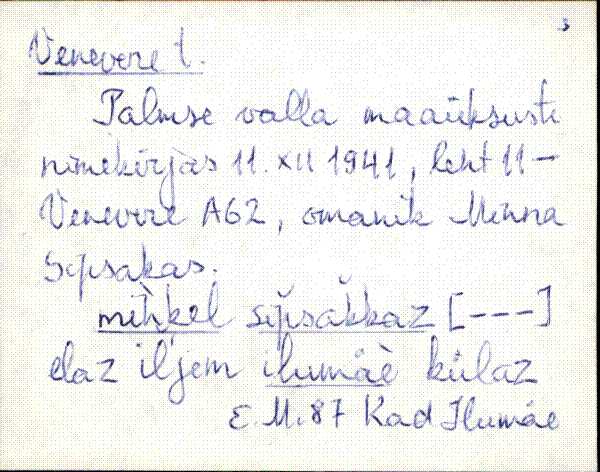 3
Venevere t.
Palmse valla maaüksuste
nimekirjas 11. XII 1941, leht 11 –
Venevere A62, omanik Minna
Sipsakas.
mihkel sipsakkaz [---]
elaz iljem ilumäe külaz
E. M. 87 Kad Ilumäe